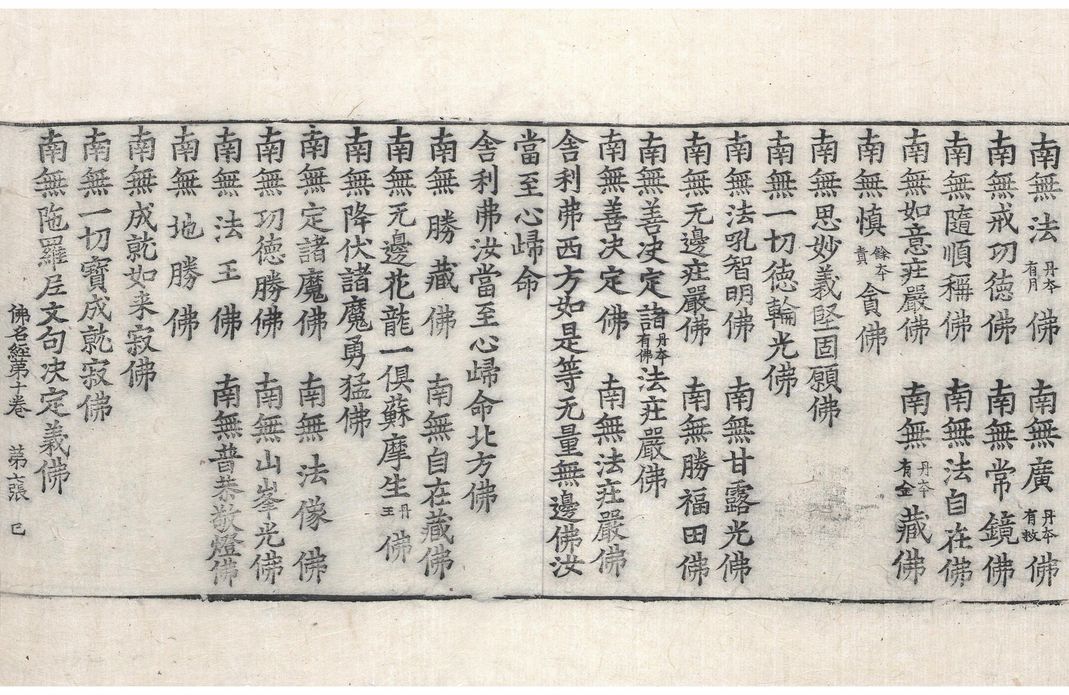 南無法丹本有月佛 南無廣丹本有敎佛
南無戒功徳佛 南無常鏡佛
南無隨順稱佛 南無法自在佛
南無如意㽵嚴佛 南無丹本有金藏佛
南無慎餘本賁貪佛
南無思妙義堅固願佛
南無一切徳輪光佛
南無法吼智明佛 南無甘露光佛
南無无邊㽵嚴佛 南無勝福田佛
南無善决定諸丹本有佛法㽵嚴佛
南無善决定佛 南無法㽵嚴佛
舍利弗西方如是等无量無邊佛汝
當至心歸命
舍利弗汝當至心歸命北方佛
南無勝藏佛 南無自在藏佛
南無无邊花龍一俱蘇摩生丹王佛
南無降伏諸魔勇猛佛
南無定諸魔佛 南無法像佛
南無功徳勝佛 南無山峯光佛
南無法王佛 南無普恭敬燈佛
南無地勝佛
南無成就如来寂佛
南無一切寶成就寂佛
南無陁羅尼文句决定義佛
佛名經第十卷 第六張 巳